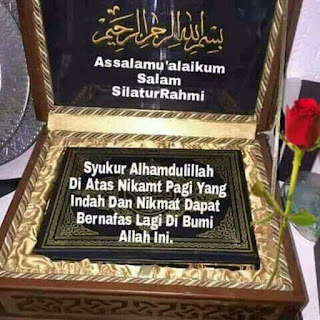 بسم الله الرحمن الرحيم
Assalamu'alaikum
Salam
SilaturRahmi
Syukur Alhamdulillah
Di Atas Nikamt Pagi Yang
Indah Dan Nikmat Dapat
Bernafas Lagi Di Bumi
Allah Ini.